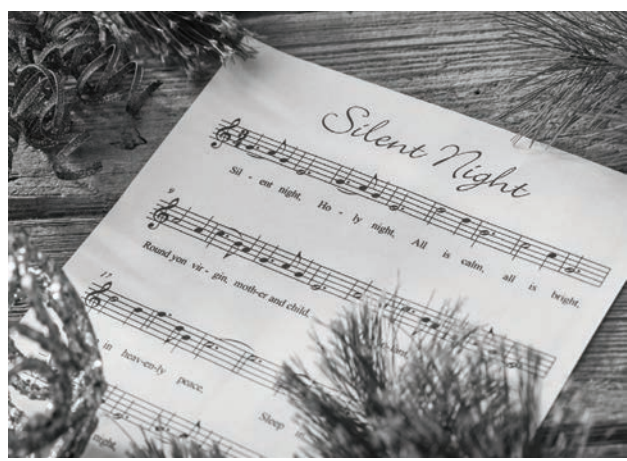 Silent Night
Sil - ent night, Ho - ly night, All is calm, all is bright,
9
Round yon vir - gin, moth-er and child.
17
in heav-en-ly peace. Sleep in
night,